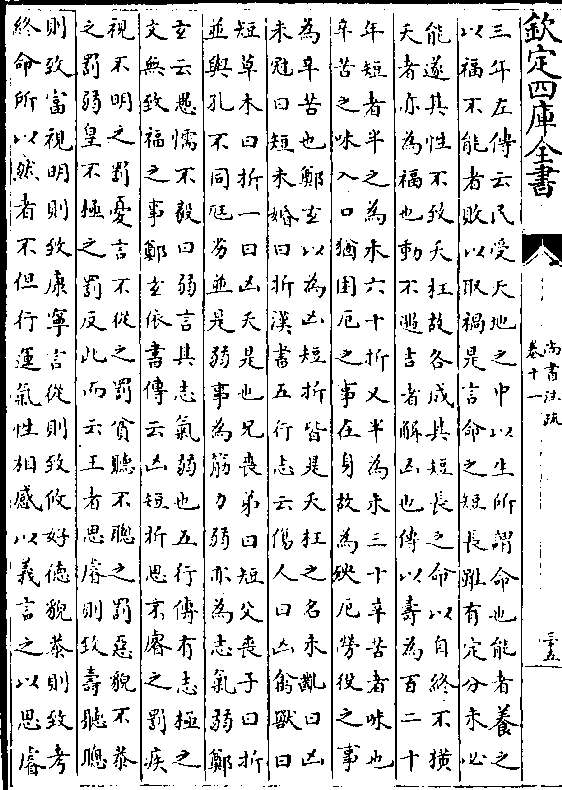 欽定四庫全書
尚書注疏
卷十一
三十五
三年左傳云民受天地之中以生所謂命也能者養之
以福不能者敗以取禍是言命之短長雖有定分未必
能遂其性不致夭枉故各成其短長之命以自終不橫
夭者亦為福也動不遇吉者解凶也傳以壽為百二十
年短者半之為未六十折又半為未三十辛苦者味也
辛苦之味入口猶困厄之事在身故為殃厄勞役之事
為辛苦也鄭玄以為凶短折皆是夭枉之名未齓曰凶
未冠曰短未婚曰折漢書五行志云傷人曰凶禽獸曰
短草木曰折一曰凶夭是也兄喪弟曰短父喪子曰折
並與孔不同尫劣並是弱事為筋力弱亦為志氣弱鄭
玄云愚懦不毅曰弱言其志氣弱也五行傳有志極之
文無致福之事鄭玄依書傳云凶短折思京睿之罰疾
視不明之罰憂言不從之罰貧聽不聰之罰惡貌不恭
之罰弱皇不極之罰反此而云王者思睿則致壽聽聰
則致富視明則致康寧言從則致攸好德貌恭則致考
終命所以然者不但行運氣性相感以義言之以思睿